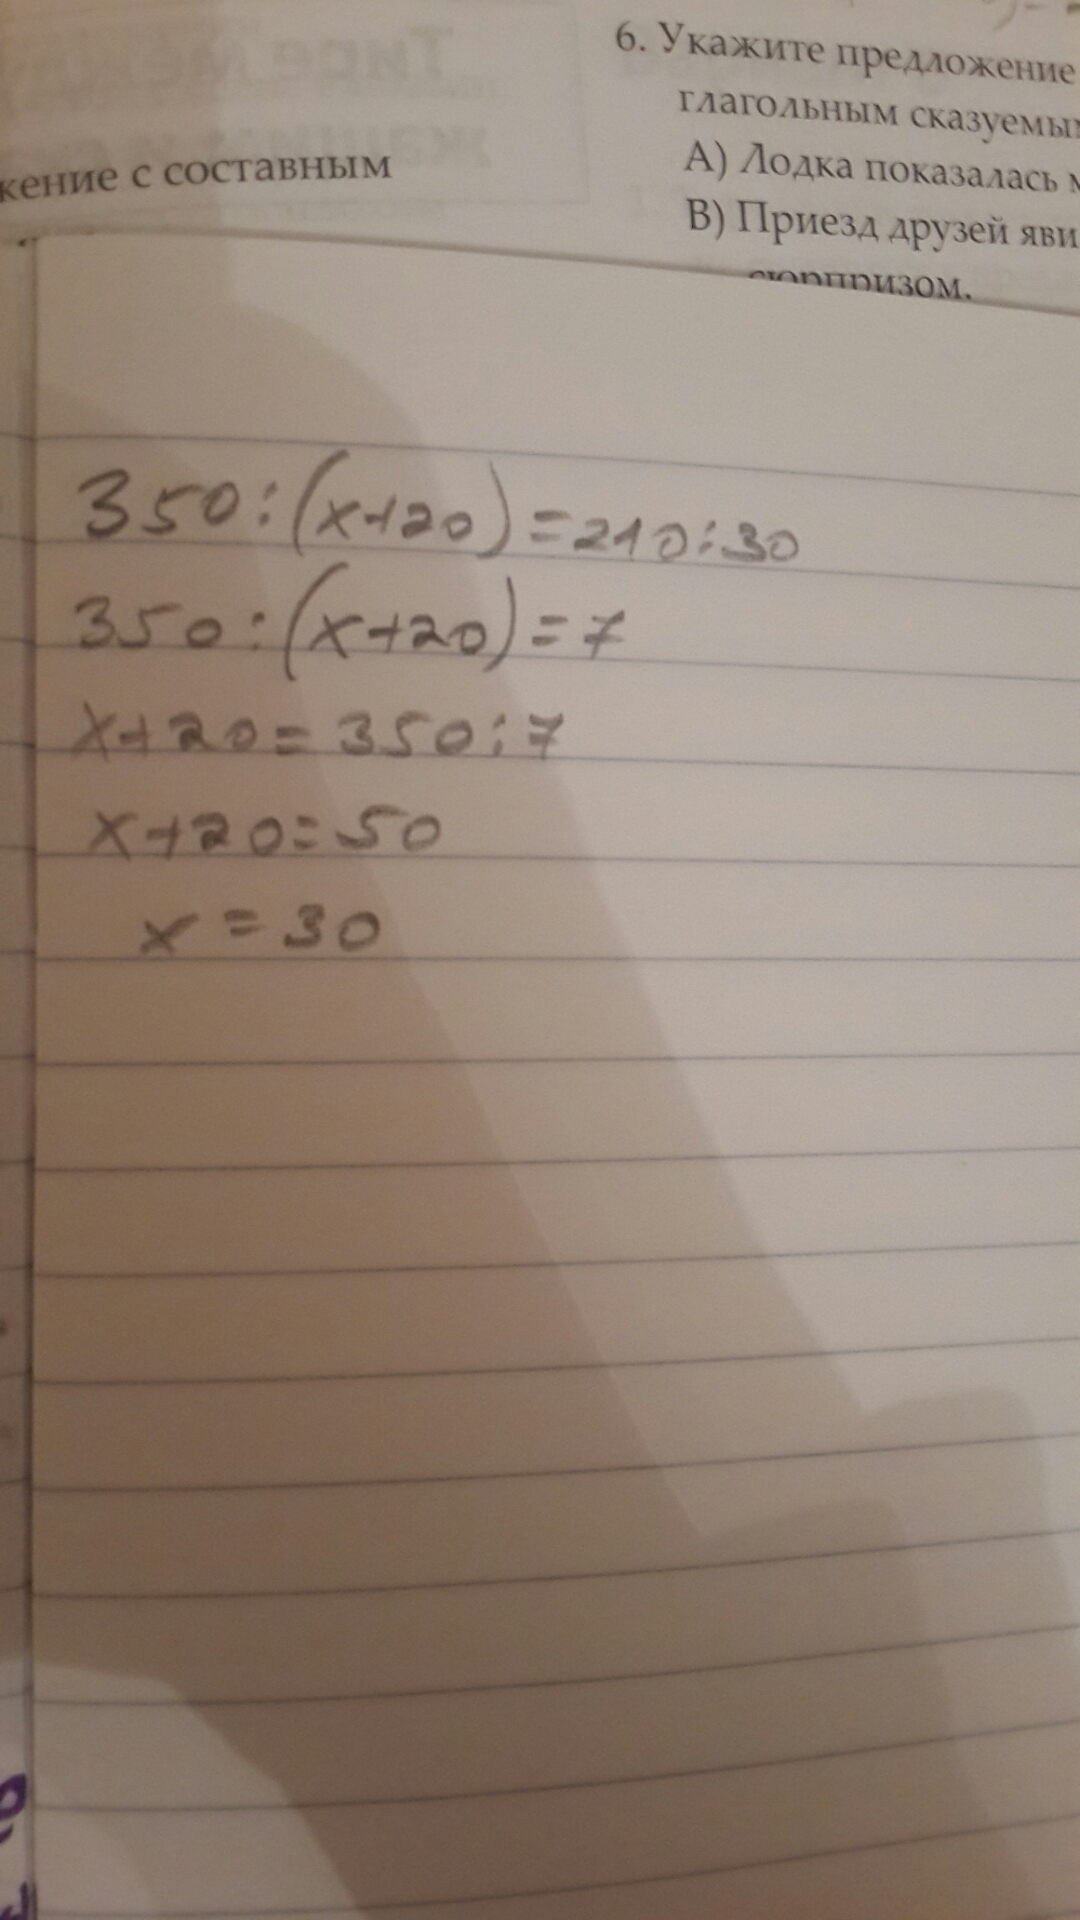 6. Укажите предложение
глагольным сказуемы
А) Лодка показалась
В) Приезд друзей яви
сюрпризом.
жение с составным
350:(x+20)=210:30
350:(x+20)=7
x+20=350:7
x+20=50
x=30